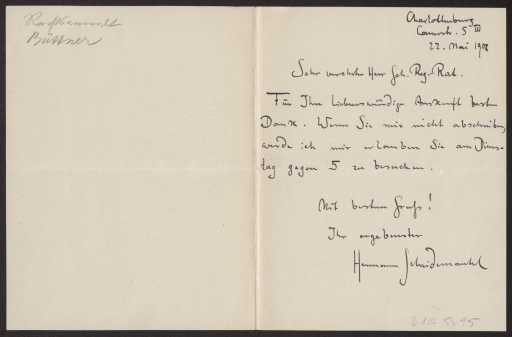 Büttner
Charlottenburg
Carmerstr. 5 III
22. Mai 1908
Sehr verehrter Herr Geh. Reg-Rat.
Für Ihre liebenswürdige Auskunft besten
Dank. Wenn Sie mir nicht abschreiben,
werde ich mir erlauben Sie am Diens-
tag gegen 5 zu besuchen.
Mit bestem Gruß!
Ihr ergebenster
Hermann Scheidemantel